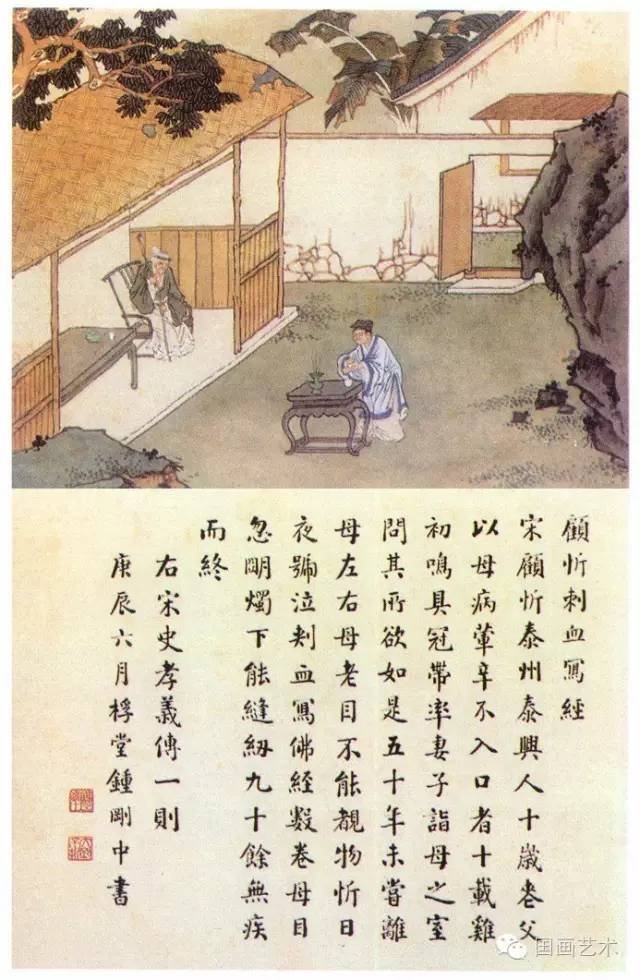 顧忻刺血寫經
宋顧忻泰州泰興人十歲喪父
以母病葷辛不入口者十載雞
初鳴具冠帶率妻子詣母之室
問其所欲如是五十年未嘗離
母左右母老目不能覩物忻日
夜號泣刺血寫佛經數卷母目
忽明燭下能縫紉九十餘無疾
而終
右宋史孝義傳一則
庚辰六月桴堂鍾剛中書
国画艺术